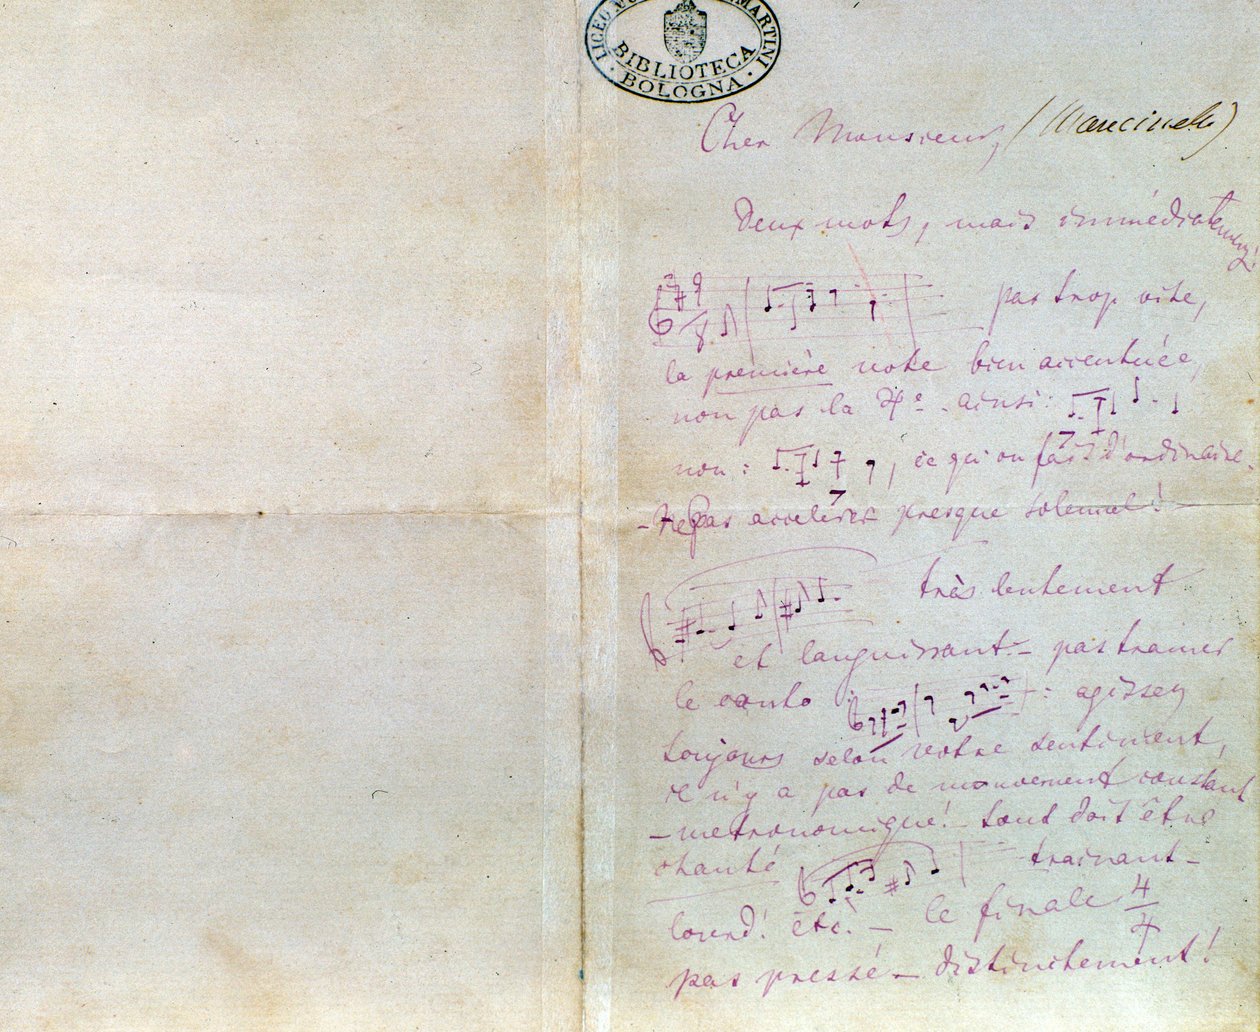 LICEO MARTINI
BIBLIOTECA
BOLOGNA
Cher Monsieur, (Mancinelli)
Deux mots, mais immédiatement!
9 8 pas trop vite,
la première note bien accentuée,
non pas la 4e. ainsi:
non: , ce qu'on fait d'ordinaire.
pas accelerer presque solennel!
très lentement
et languissant. – pas trainer
le canto : agissez
toujours selon votre sentiment,
il n'y a pas de mouvement constant
– metronomique! – tout doit être
chanté trainant –
lourd! etc! – le finale 4/4
pas pressé – distinctement!